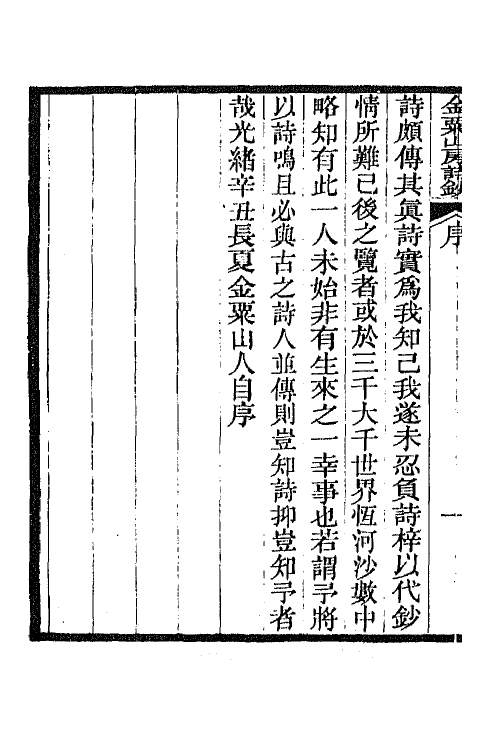 金粟山房詩鈔 序 一
詩頗傳其眞詩實爲我知己我遂未忍負詩梓以代鈔
情所難已後之覽者或於三千大千世界恆河沙數中
略知有此一人未始非有生來之一幸事也若謂予將
以詩鳴且必與古之詩人並傳則豈知詩抑豈知予者
哉光緒辛丑長夏金粟山人自序